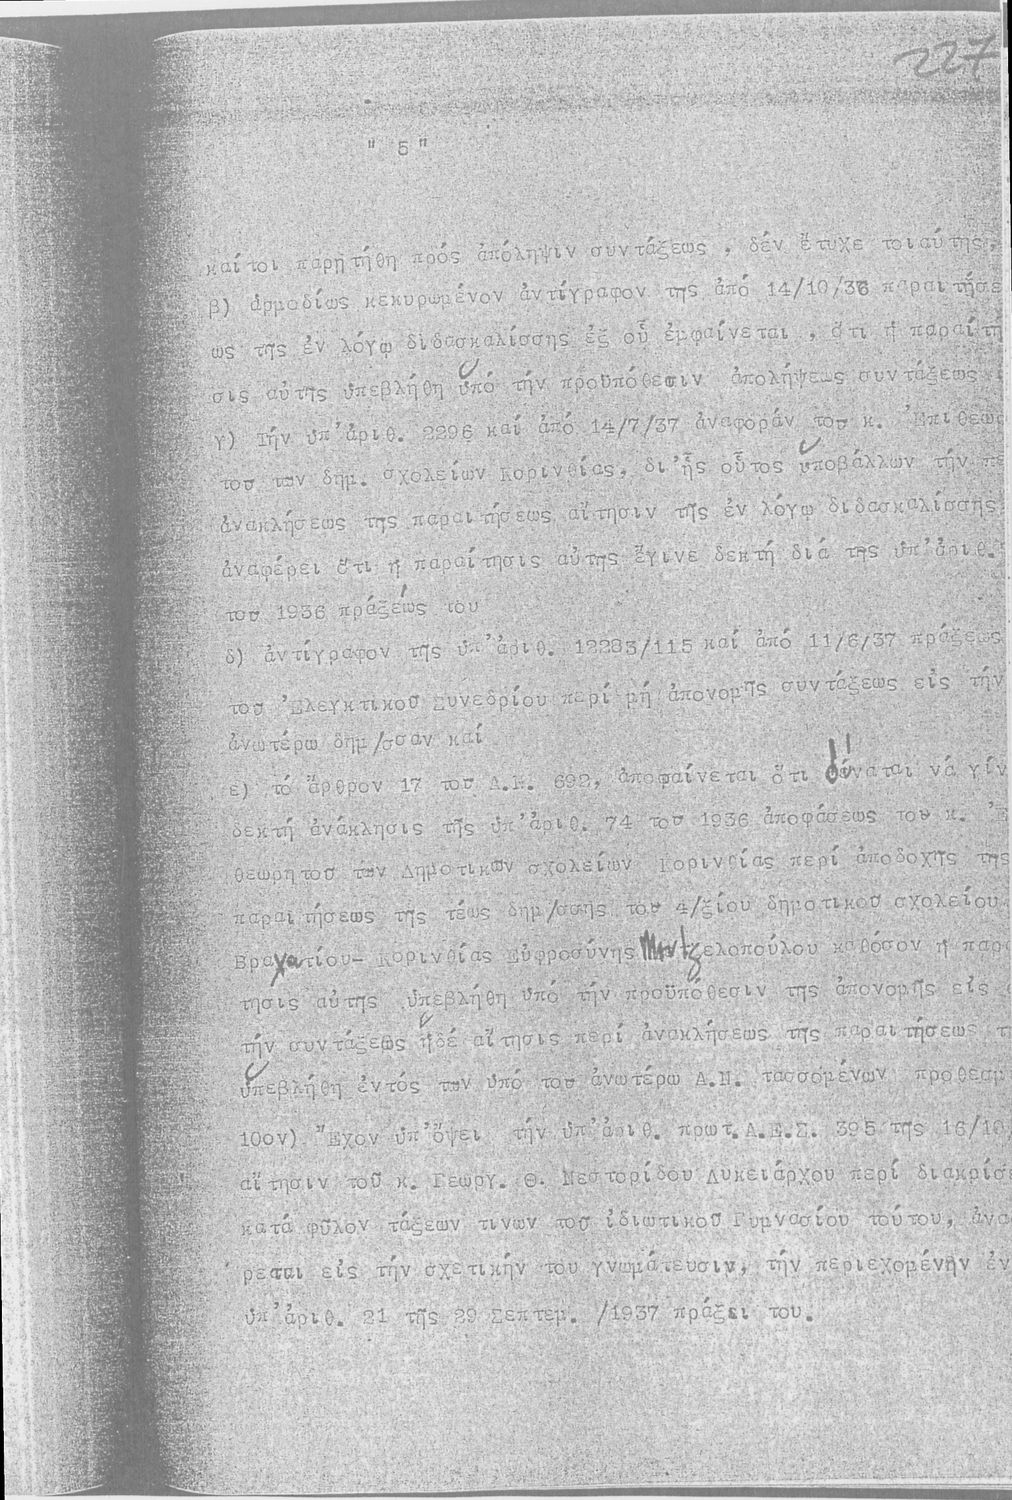 227
" 5 "
καίτοι παρῃτήθη πρός ἀπόληψιν συντάξεως , δέν ἔτυχε τοιαύτης,
β) ἁρμοδίως κεκυρωμένον ἀντίγραφον τῆς ἀπό 14/10/36 παραιτήσε
ως τῆς ἐν λόγῳ διδασκαλίσσης ἐξ οὗ ἐμφαίνεται , ὅτι ἡ παραίτη
σις αὐτῆς ὑπεβλήθη ὑπό τήν προϋπόθεσιν ἀπολήψεως συντάξεως
γ) Τήν ὑπ'ἀριθ. 2296 καί ἀπό 14/7/37 ἀναφοράν τοῦ κ. Ἐπιθεω
τοῦ τῶν δημ. σχολείων Κορινθίας, δι'ἧς οὗτος ὑποβάλλων τήν πε
ἀνακλήσεως τῆς παραιτήσεως αἴτησιν τῆς ἐν λόγῳ διδασκαλίσσης
ἀναφέρει ὅτι ἡ παραίτησις αὐτῆς ἔγινε δεκτή διά τῆς ὑπ'ἀριθ.
τοῦ 1936 πράξεώς του
δ) ἀντίγραφον τῆς ὑπ'ἀριθ. 12283/115 καί ἀπό 11/6/37 πράξεως
τοῦ Ἐλεγκτικοῦ Συνεδρίου περί μή ἀπονομῆς συντάξεως εἰς τήν
ἀνωτέρω δημ/σσαν καί
ε) τό ἄρθρον 17 τοῦ Α.Ν. 692, ἀποφαίνεται ὅτι δύναται νά γίν
δεκτή ἀνάκλησις τῆς ὑπ'ἀριθ. 74 τοῦ 1936 ἀποφάσεως τοῦ κ. Ἐ
θεωρητοῦ τῶν Δημοτικῶν σχολείων Κορινθίας περί ἀποδοχῆς τῆς
παραιτήσεως τῆς τέως δημ/σσης τοῦ 4/ξίου δημοτικοῦ σχολείου
Βραχατίου- Κορινθίας Εὐφροσύνης Μεντζελοπούλου καθόσον ἡ παρα
τησις αὐτῆς ὑπεβλήθη ὑπό τήν προϋπόθεσιν τῆς ἀπονομῆς εἰς
τήν συντάξεως ἡδέ αἴτησις περί ἀνακλήσεως τῆς παραιτήσεως τ
ὑπεβλήθη ἐντός τῶν ὑπό τοῦ ἀνωτέρω Α.Ν. τασσομένων προθεσμ
10ον) Ἔχον ὑπ'ὄψει τήν ὑπ'ἀριθ. πρωτ. Α.Ε.Σ. 395 τῆς 16/10
αἴτησιν τοῦ κ. Γεωργ. Θ. Νεστορίδου Λυκειάρχου περί διακρίσε
κατά φῦλον τάξεων τινων τοῦ ἰδιωτικοῦ Γυμνασίου τούτου, ἀνα
ρεται εἰς τήν σχετικήν του γνωμάτευσιν, τήν περιεχομένην ἐν
ὑπ'ἀριθ. 21 τῆς 29 Σεπτεμ. /1937 πράξει του.